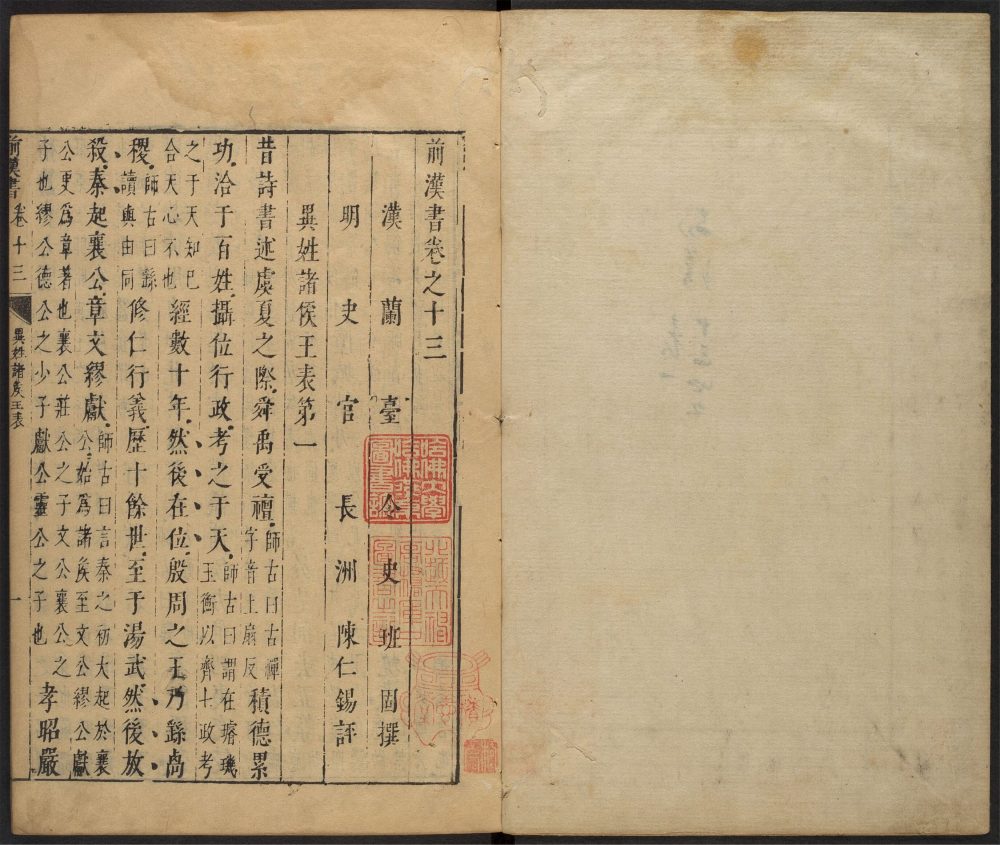 前漢書卷之十三
漢蘭臺令史班固撰
明史官長洲陳仁錫評
異姓諸侯王表第一
昔詩書述虞夏之際舜禹受禪師古曰古禪字音上扇反積德累
功洽于百姓攝位行政考之于天師古曰謂在璿璣玉衡以齊七政考
之于天知已合天心不也經數十年然後在位殷周之王乃繇卨
稷師古曰繇讀與由同修仁行義歷十餘世至于湯武然後放
殺秦起襄公章文繆獻師古曰言秦之初大起於襄公始爲諸侯至文公繆公獻
公更爲章著也襄公莊公之子文公襄公之子也繆公德公之少子獻公靈公之子也孝昭嚴
前漢書卷十三
異姓諸侯王表
一
哈佛大學哈佛燕京圖書館